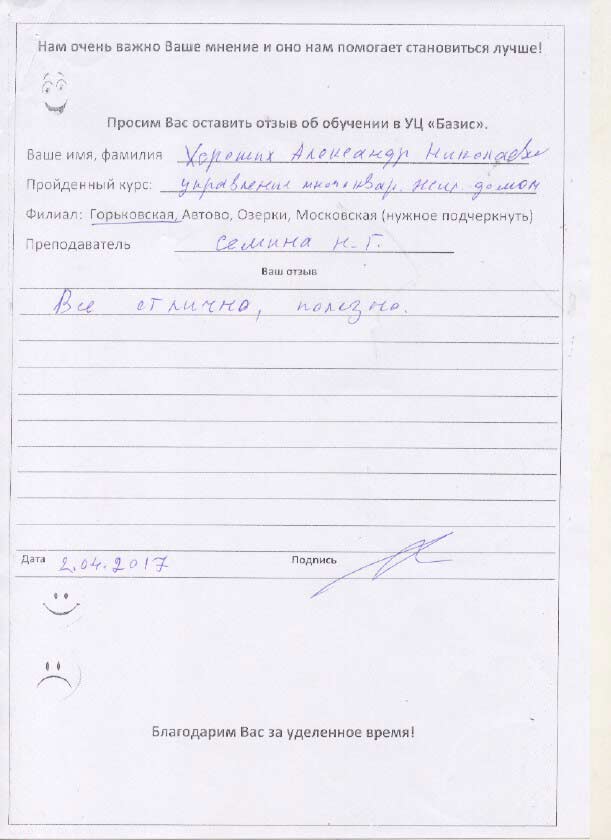 Нам очень важно Ваше мнение и оно нам помогает становиться лучше!
Просим Вас оставить отзыв об обучении в УЦ «Базис».
Ваше имя, фамилия Хороших Александр Николаевич
Пройденный курс: управление многоквар. жил. домом
Филиал: Горьковская, Автово, Озерки, Московская (нужное подчеркнуть)
Преподаватель Семина Н.Г.
Ваш отзыв
Все отлично, полезно.
Дата 2.04.2017 Подпись
Благодарим Вас за уделенное время!